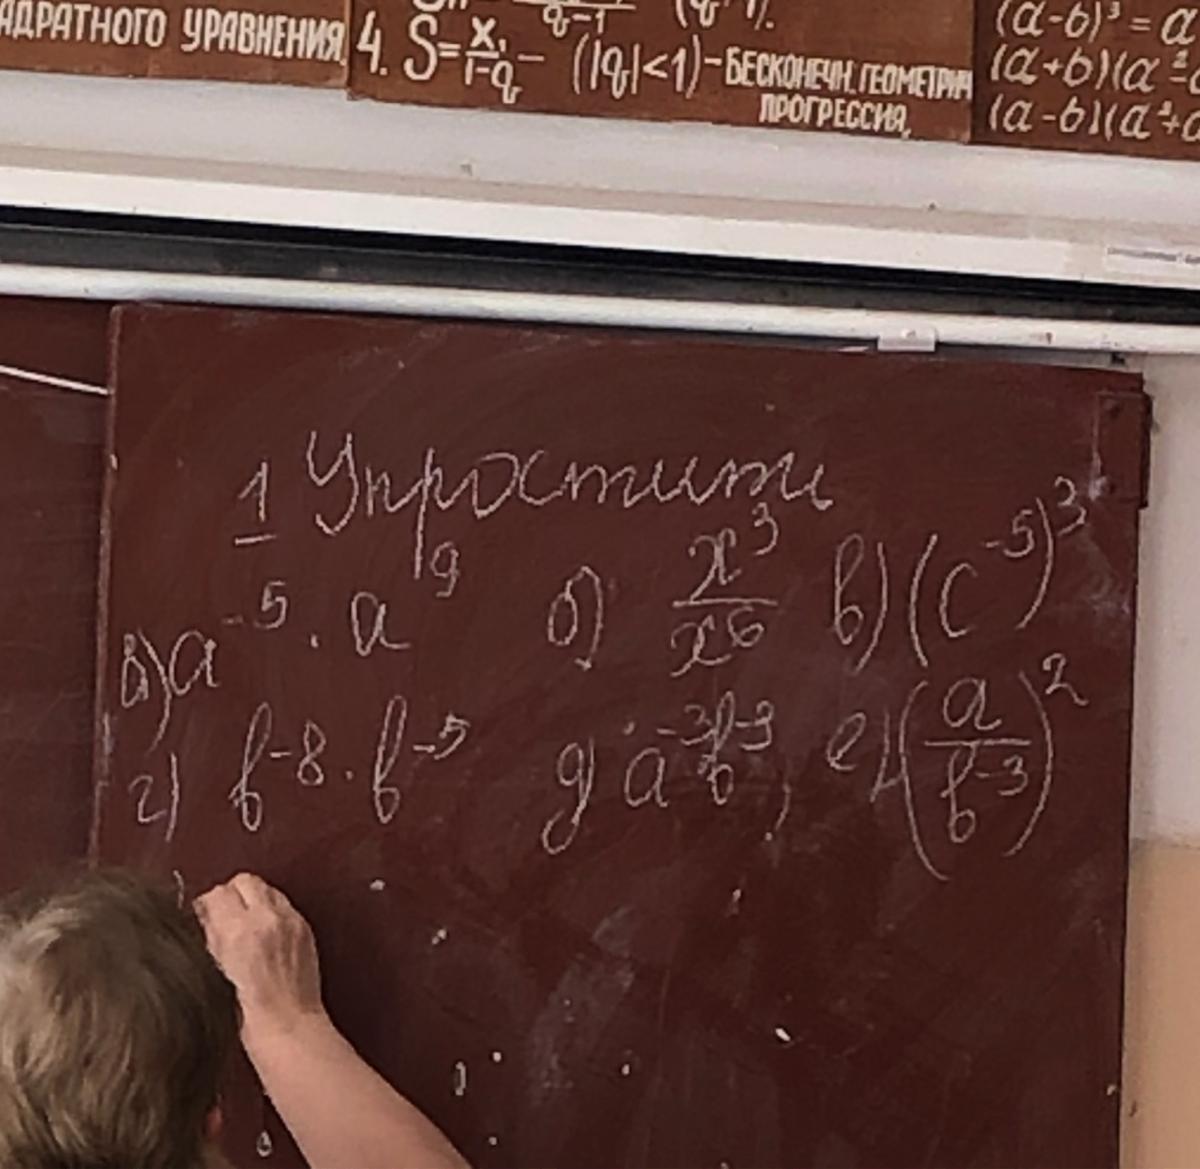 АДРАТНОГО УРАВНЕНИЯ.
4. S = x₁/(1-q) - (|q|<1) - БЕСКОНЕЧН. ГЕОМЕТРИЧ
ПРОГРЕССИЯ.
(a-b)³ = a
(a+b)(a²-a
(a-b)(a²+a
1 Упростить
а) a⁻⁵ · a⁹ б) x³/x⁶ в) (c⁻⁵)³
г) b⁻⁸ · b⁻⁵ д) a⁻³b⁻³ , е) (a/b⁻³)²